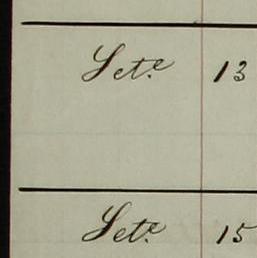 Sete 13
Sete 15